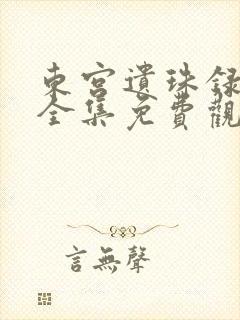 東宮遺珠録
全集免費觀
言無聲